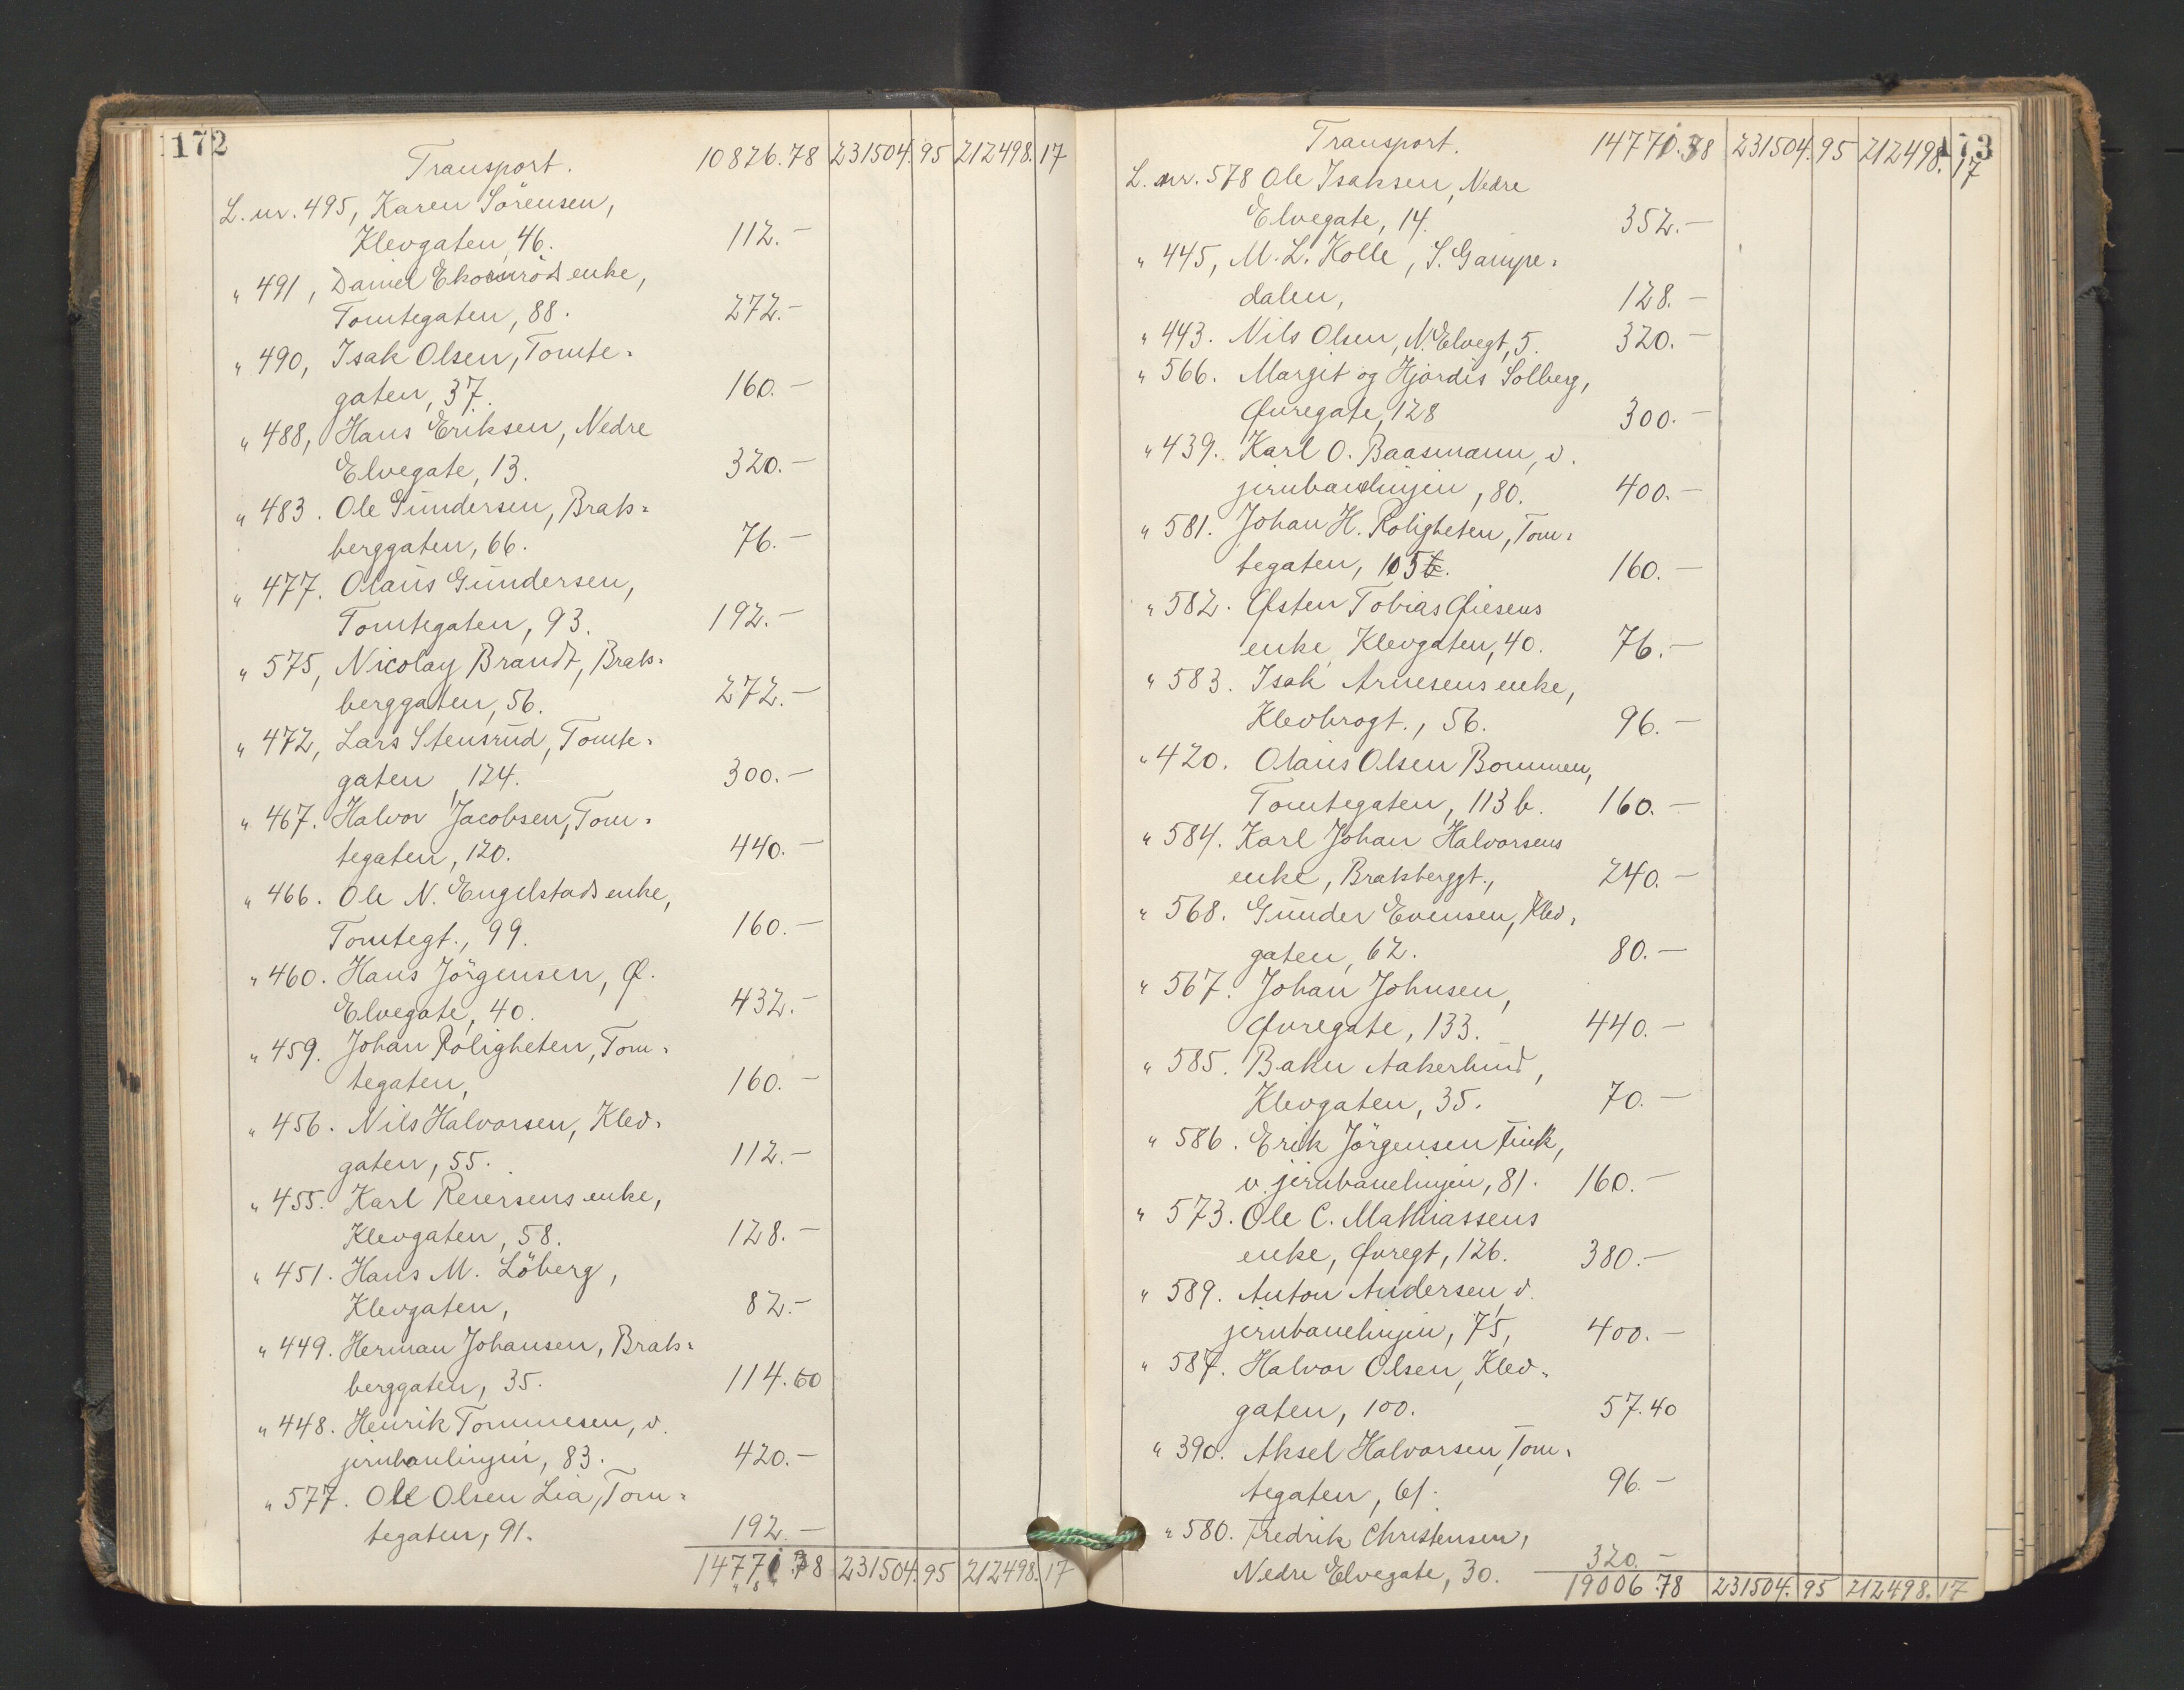 172
Transport. 10826.78 231504.95 212498.17
L. nr. 495, Karen Sörensen,
Klevgaten, 46. 112.—
" 491, Daniel Ekornröds enke,
Tomtegaten, 88. 272.—
" 490, Isak Olsen, Tomte=
gaten, 37. 160.—
" 488, Hans Eriksen, Nedre
Elvegate, 13. 320.—
" 483. Ole Gundersen, Brats=
berggaten, 66. 76.—
" 477. Olaus Gundersen,
Tomtegaten, 93. 192.—
" 575, Nicolay Brandt, Brats=
berggaten, 56. 272.—
" 472, Lars Stensrud, Tomte=
gaten, 124. 300.—
" 467. Halvor Jacobsen, Tom=
tegaten, 120. 440.—
" 466. Ole N. Engelstads enke,
Tomtegt., 99. 160.—
" 460. Hans Jörgensen, Ø.
Elvegate, 40. 432.—
" 459. Johan Roligheten, Tom=
tegaten, 160.—
" 456. Nils Halvorsen, Klev=
gaten, 55. 112.—
" 455. Karl Reiersens enke,
Klevgaten, 58. 128.—
" 451. Hans M. Löberg,
Klevgaten, 82.—
" 449. Herman Johansen, Brats=
berggaten, 35. 114.60
" 448. Henrik Tommesen, v.
jernbanlinjen, 83. 420.—
" 577. Ole Olsen Lia, Tom=
tegaten, 91. 192.—
14771.38 231504.95 212498.17
173
Transport. 14771.38 231504.95 212498.17
L. nr. 578 Ole Isaksen, Nedre
Elvegate, 14. 352.—
" 445, M. L. Kolle, S. Gampe=
dalen, 128.—
" 443. Nils Olsen, N. Elvegt, 5. 320.—
" 566. Margit og Hjördis Solberg,
Øvregate, 128 300.—
" 439. Karl O. Baasmann, v.
jernbanelinjen, 80. 400.—
" 581. Johan H. Roligheten, Tom=
tegaten, 105b. 160.—
" 582. Østen Tobias Øiesens
enke, Klevgaten, 40. 76.—
" 583. Isak Arnesens enke,
Klevbrogt., 56. 96.—
" 420. Olaus Olsen Bommen,
Tomtegaten, 113 b. 160.—
" 584. Karl Johan Halvorsens
enke, Bratsberggt., 240.—
" 568. Gunder Evensen, Klev=
gaten, 62. 80.—
" 567. Johan Johnsen,
Øvregate, 133. 440.—
" 585. Baker Aakerlund,
Klevgaten, 35. 70.—
" 586. Erik Jörgensen Fink,
v. jernbanelinjen, 81. 160.—
" 573. Ole C. Mathiassens
enke, Øvregt, 126. 380.—
" 589. Anton Andersen, v.
jernbanelinjen, 75, 400.—
" 587. Halvor Olsen, Klev=
gaten, 100. 57.40
" 390. Aksel Halvorsen, Tom=
tegaten, 61. 96.—
" 580. Fredrik Christensen,
Nedre Elvegate, 30. 320.—
19006.78 231504.95 212498.17